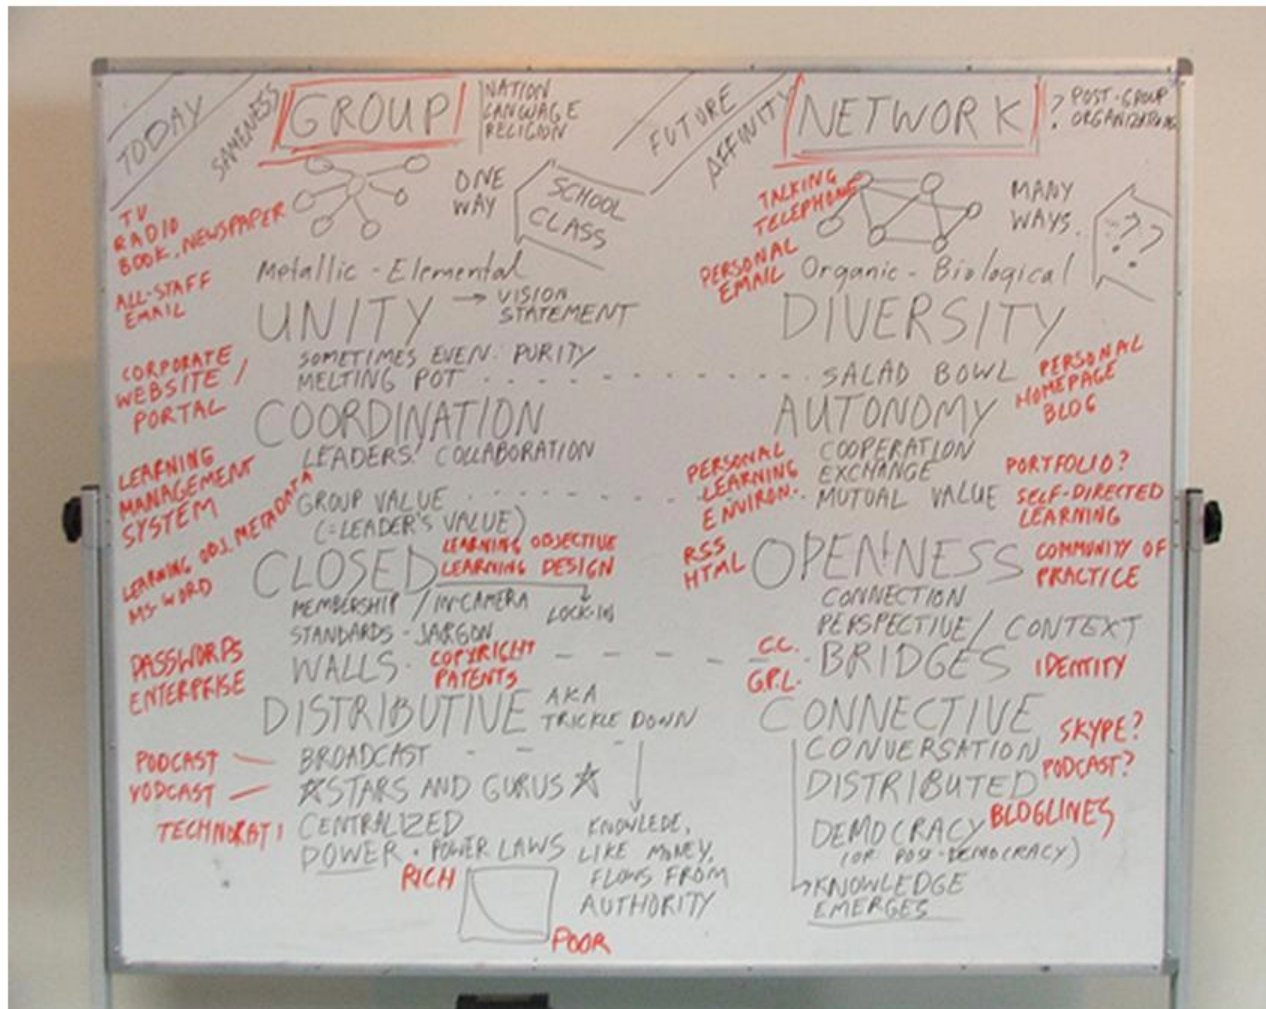 TODAY
SAMENESS
GROUP
NATION
LANGUAGE
RELIGION
ONE
WAY
SCHOOL
CLASS
TV
RADIO
BOOK, NEWSPAPER
ALL-STAFF
EMAIL
Metallic - Elemental
UNITY → VISION
STATEMENT
SOMETIMES EVEN PURITY
MELTING POT
CORPORATE
WEBSITE /
PORTAL
COORDINATION
LEADERS COLLABORATION
LEARNING
MANAGEMENT
SYSTEM
GROUP VALUE
(=LEADER'S VALUE)
LEARNING OBJ. METADATA
MS-WORD
CLOSED
LEARNING OBJECTIVE
LEARNING DESIGN
MEMBERSHIP / IN-CAMERA
LOCK-IN
STANDARDS - JARGON
WALLS
COPYRIGHT
PATENTS
PASSWORDS
ENTERPRISE
DISTRIBUTIVE AKA
TRICKLE DOWN
BROADCAST
PODCAST
VODCAST
☆STARS AND GURUS☆
TECHNORATI
CENTRALIZED
POWER • POWER LAWS
RICH
POOR
KNOWLEDE,
LIKE MONEY,
FLOWS FROM
AUTHORITY
FUTURE
AFFINITY
NETWORK
? POST-GROUP
TALKING
TELEPHONE
PERSONAL
EMAIL
MANY
WAYS.
???
Organic - Biological
DIVERSITY
SALAD BOWL
PERSONAL
HOMEPAGE
BLOG
AUTONOMY
COOPERATION
EXCHANGE
MUTUAL VALUE
PERSONAL
LEARNING
ENVIRON.
PORTFOLIO?
SELF-DIRECTED
LEARNING
RSS
HTML
OPENNESS
COMMUNITY OF
PRACTICE
CONNECTION
PERSPECTIVE/CONTEXT
C.C.
G.P.L.
BRIDGES
IDENTITY
CONNECTIVE
CONVERSATION
SKYPE?
DISTRIBUTED
PODCAST?
DEMOCRACY
BLOGLINES
(OR POST-DEMOCRACY)
KNOWLEDGE
EMERGES